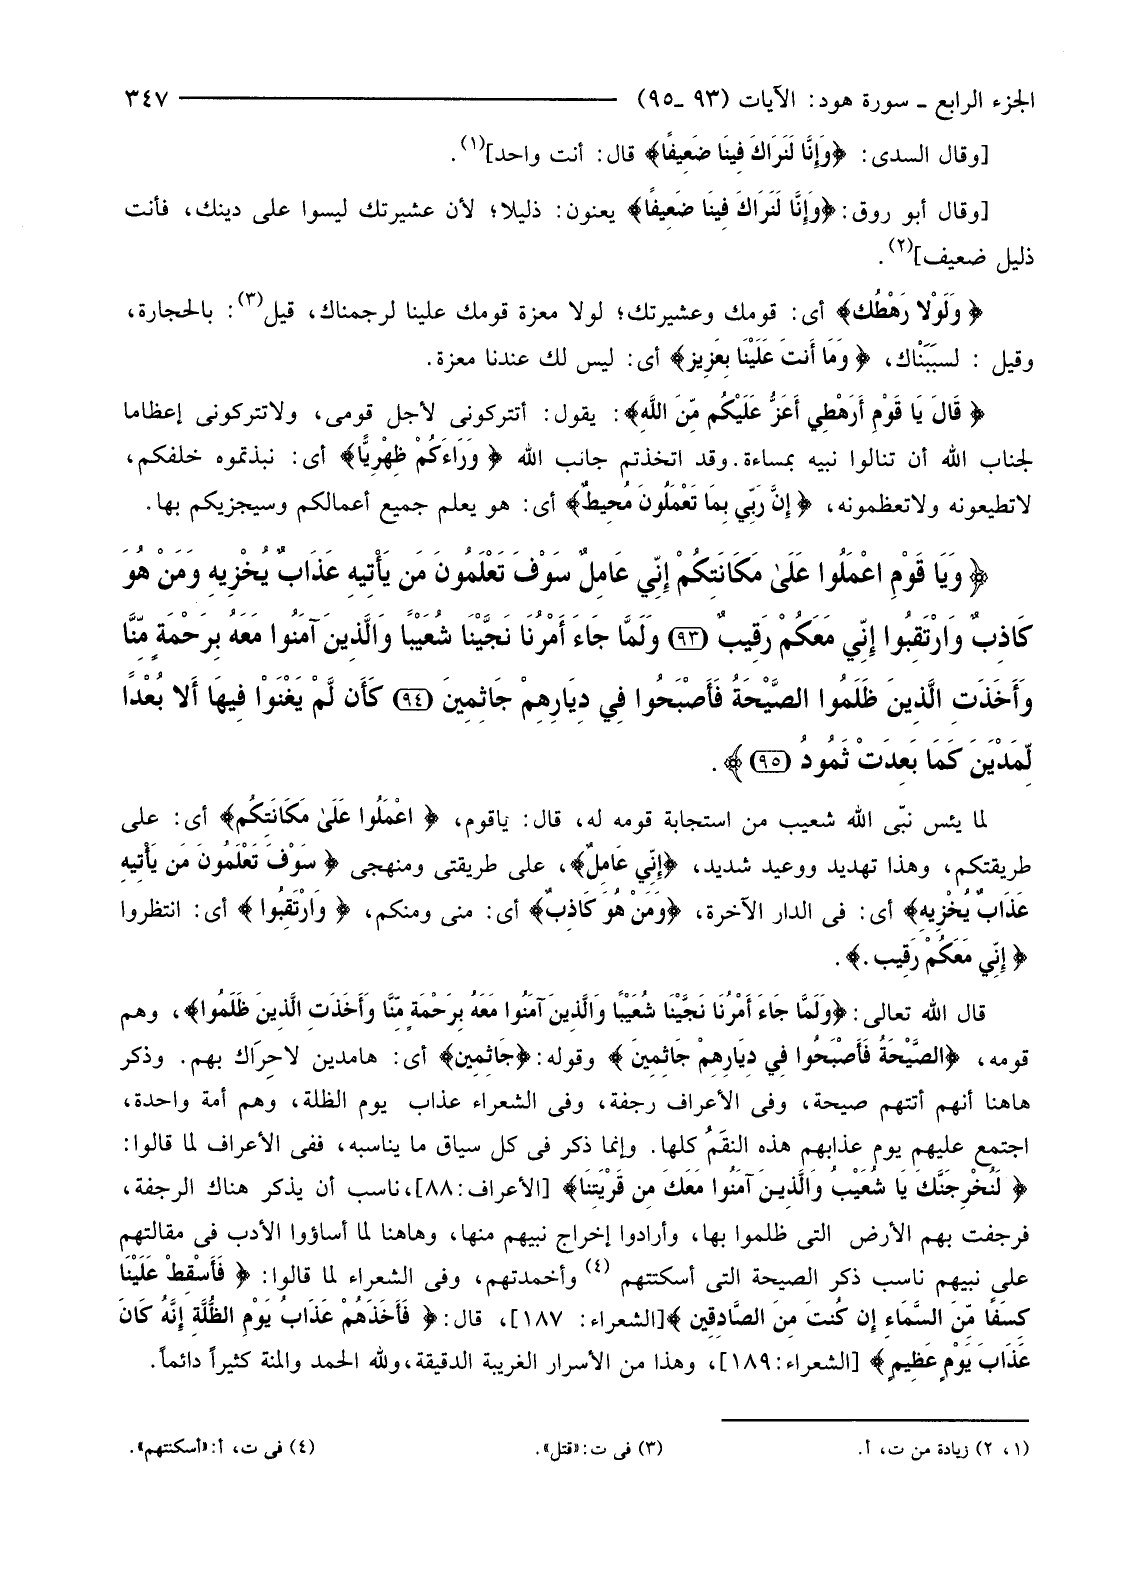 الجزء الرابع ـ سورة هود: الآيات (٩٣ ـ٩٥) ــــــــــــــــــ ٣٤٧
[وقال السدى: ﴿وَإِنَّا لَنَرَاكَ فِينَا ضَعِيفًا﴾ قال: أنت واحد](١).
[وقال أبو روق: ﴿وَإِنَّا لَنَرَاكَ فِينَا ضَعِيفًا﴾ يعنون: ذليلا؛ لأن عشيرتك ليسوا على دينك، فأنت
ذليل ضعيف](٢).
﴿ وَلَوْلا رَهْطُك﴾ أى: قومك وعشيرتك؛ لولا معزة قومك علينا لرجمناك، قيل(٣): بالحجارة،
وقيل : لسبَبَنْاك، ﴿ وَمَا أَنتَ عَلَيْنَا بِعَزِيز﴾ أى: ليس لك عندنا معزة.
﴿ قَالَ يَا قَوْمِ أَرَهْطِي أَعَزُّ عَلَيْكُم مِّنَ اللَّهِ﴾: يقول: أتتركونى لأجل قومى، ولاتتركونى إعظاما
لجناب الله أن تنالوا نبيه بمساءة.وقد اتخذتم جانب الله ﴿ وَرَاءَكُمْ ظِهْرِيًّا﴾ أى: نبذتموه خلفكم،
لاتطيعونه ولاتعظمونه، ﴿ إِنَّ رَبِّي بِمَا تَعْمَلُونَ مُحِيطٌ﴾ أى: هو يعلم جميع أعمالكم وسيجزيكم بها.
﴿ وَيَا قَوْمِ اعْمَلُوا عَلَىٰ مَكَانَتِكُمْ إِنِّي عَامِلٌ سَوْفَ تَعْلَمُونَ مَن يَأْتِيهِ عَذَابٌ يُخْزِيهِ وَمَنْ هُوَ
كَاذِبٌ وَارْتَقِبُوا إِنِّي مَعَكُمْ رَقِيبٌ (٩٣) وَلَمَّا جَاءَ أَمْرُنَا نَجَّيْنَا شُعَيْبًا وَالَّذِينَ آمَنُوا مَعَهُ بِرَحْمَةٍ مِّنَّا
وَأَخَذَتِ الَّذِينَ ظَلَمُوا الصَّيْحَةُ فَأَصْبَحُوا فِي دِيَارِهِمْ جَاثِمِينَ (٩٤) كَأَن لَّمْ يَغْنَوْا فِيهَا أَلا بُعْدًا
لِّمَدْيَنَ كَمَا بَعِدَتْ ثَمُودُ (٩٥) ﴾ .
لما يئس نبّى الله شعيب من استجابة قومه له، قال: ياقوم، ﴿ اعْمَلُوا عَلَىٰ مَكَانَتِكُم﴾ أى: على
طريقتكم، وهذا تهديد ووعيد شديد، ﴿إِنِّي عَامِلٌ﴾، على طريقتى ومنهجى ﴿ سَوْفَ تَعْلَمُونَ مَن يَأْتِيهِ
عَذَابٌ يُخْزِيهِ﴾ أى: فى الدار الآخرة، ﴿وَمَنْ هُوَ كَاذِبٌ﴾ أى: منى ومنكم، ﴿ وَارْتَقِبُوا ﴾ أى: انتظروا
﴿ إِنِّي مَعَكُمْ رَقِيب .﴾.
قال الله تعالى: ﴿وَلَمَّا جَاءَ أَمْرُنَا نَجَّيْنَا شُعَيْبًا وَالَّذِينَ آمَنُوا مَعَهُ بِرَحْمَةٍ مِّنَّا وَأَخَذَتِ الَّذِينَ ظَلَمُوا﴾، وهم
قومه، ﴿الصَّيْحَةُ فَأَصْبَحُوا فِي دِيَارِهِمْ جَاثِمِينَ ﴾ وقوله: ﴿جَاثِمِين﴾ أى: هامدين لاحِرَاك بهم. وذكر
هاهنا أنهم أتتهم صيحة، وفى الأعراف رجفة، وفى الشعراء عذاب يوم الظلة، وهم أمة واحدة،
اجتمع عليهم يوم عذابهم هذه النقَمُ كلها. وإنما ذكر فى كل سياق ما يناسبه، ففى الأعراف لما قالوا:
﴿ لَنُخْرِجَنَّكَ يَا شُعَيْبُ وَالَّذِينَ آمَنُوا مَعَكَ مِن قَرْيَتِنَا﴾ [الأعراف:٨٨]،ناسب أن يذكر هناك الرجفة،
فرجفت بهم الأرض التى ظلموا بها، وأرادوا إخراج نبيهم منها، وهاهنا لما أساؤوا الأدب فى مقالتهم
على نبيهم ناسب ذكر الصيحة التى أسكتتهم (٤) وأخمدتهم، وفى الشعراء لما قالوا: ﴿ فَأَسْقِطْ عَلَيْنَا
كِسَفًا مِّنَ السَّمَاءِ إِن كُنتَ مِنَ الصَّادِقِين ﴾[الشعراء: ١٨٧]، قال: ﴿ فَأَخَذَهُمْ عَذَابُ يَوْمِ الظُّلَّةِ إِنَّهُ كَانَ
عَذَابَ يَوْمٍ عَظِيمٍ ﴾ [الشعراء:١٨٩]، وهذا من الأسرار الغريبة الدقيقة،ولله الحمد والمنة كثيراً دائماً.
(١، ٢) زيادة من ت، أ. (٣) فى ت: «قتل». (٤) فى ت، أ: «أسكنتهم».